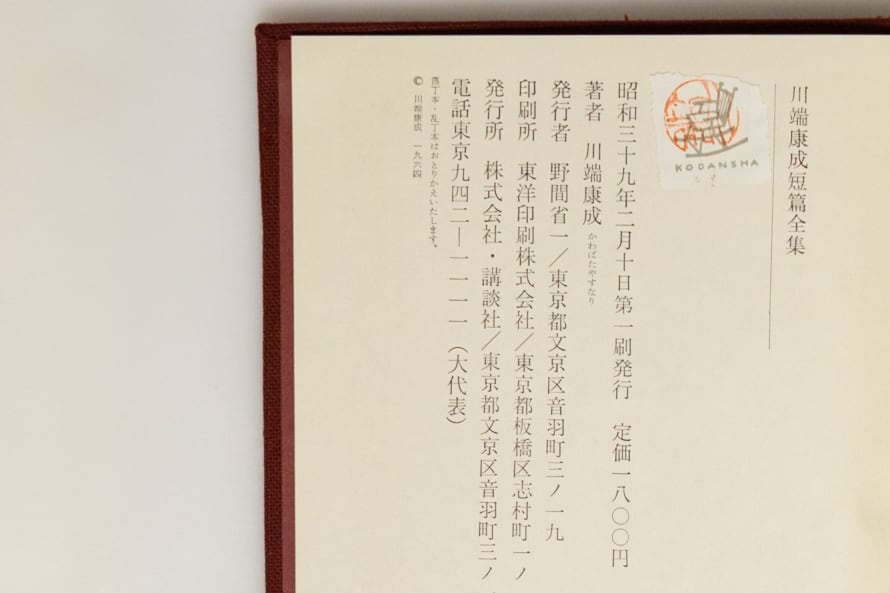 川端康成短篇全集
KODANSHA
昭和三十九年二月十日第一刷発行　定価一八〇〇円
著者　川端康成 かわばたやすなり
発行者　野間省一／東京都文京区音羽町三ノ一九
印刷所　東洋印刷株式会社／東京都板橋区志村町一ノ
発行所　株式会社・講談社／東京都文京区音羽町三ノ
電話東京九四二―一一一一（大代表）
落丁本・乱丁本はおとりかえいたします。
© 川端康成　一九六四